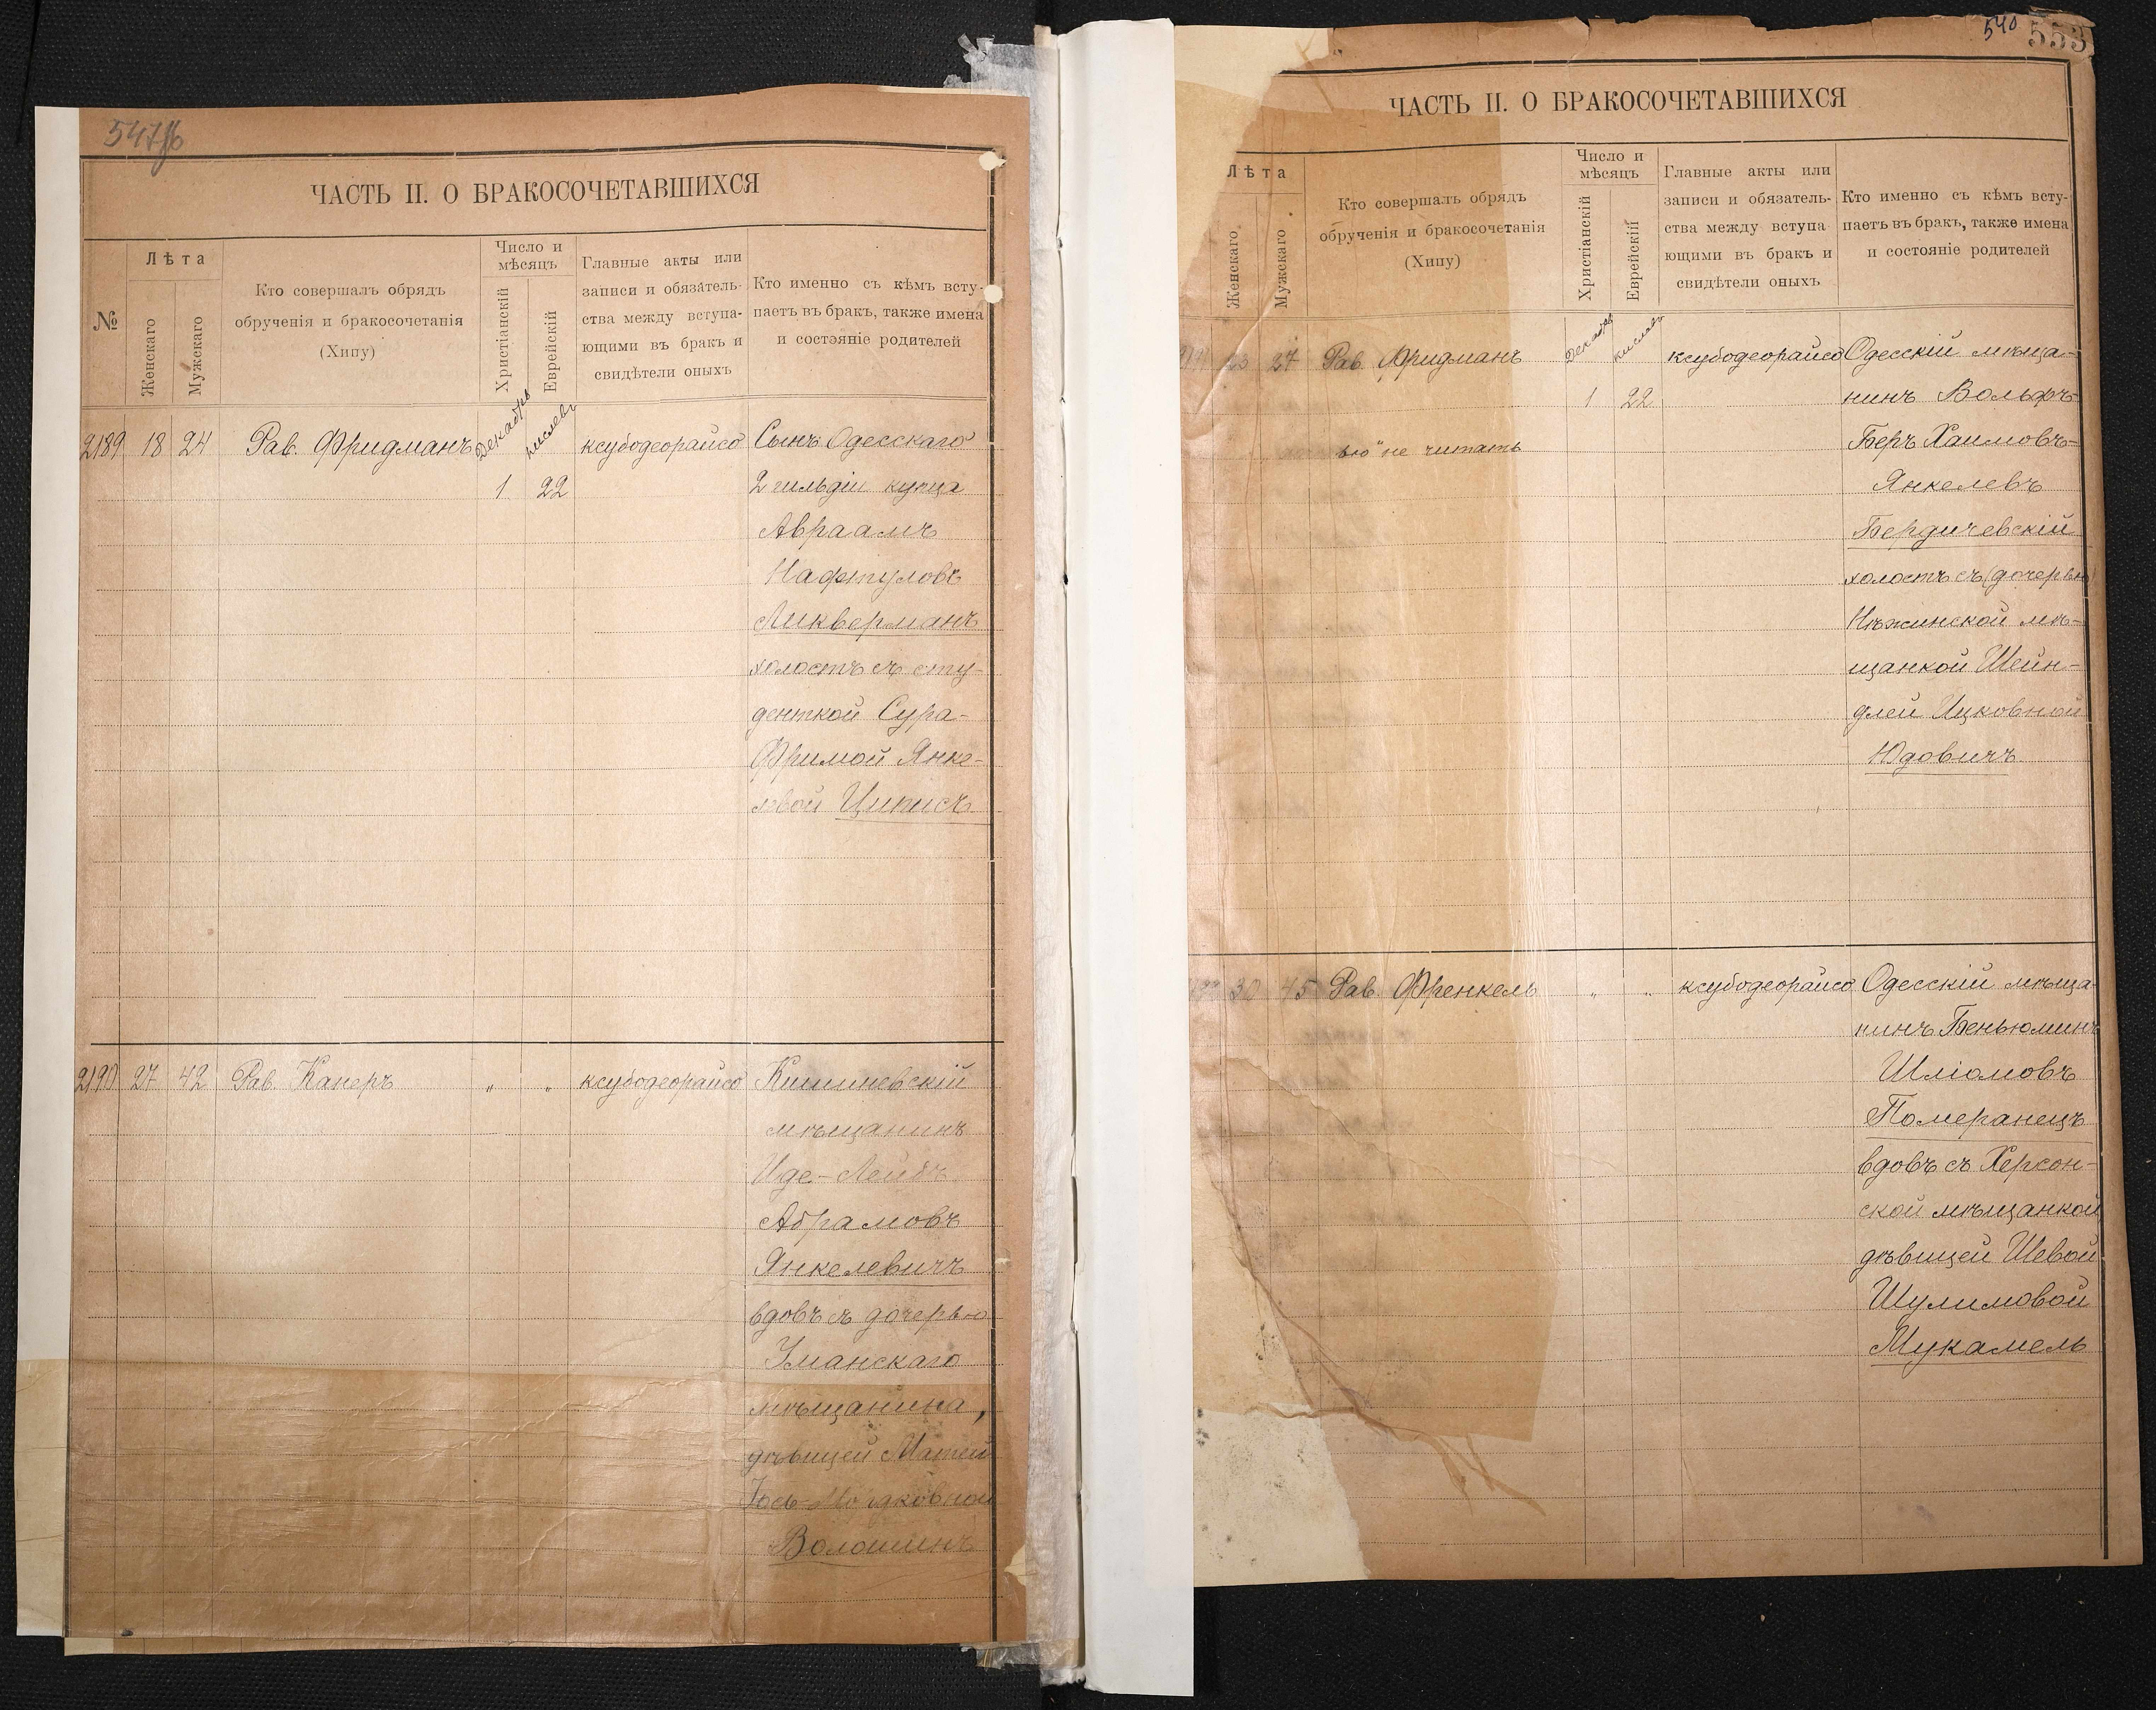 547об
ЧАСТЬ II. О БРАКОСОЧЕТАВШИХСЯ
№
Лѣта
Женскаго
Мужескаго
Кто совершалъ обрядъ
обрученія и бракосочетанія
(Хипу)
Число и
мѣсяцъ
Христіанскій
Еврейскій
Главные акты или
записи и обязатель-
ства между вступа-
ющими въ бракъ и
свидѣтели оныхъ
Кто именно съ кѣмъ всту-
паетъ въ бракъ, также имена
и состояніе родителей
2189 18 24 Рав. Фридманъ Декабрь кислевъ ксубодеорайсо Сынъ Одесскаго
1 22 2 гильдіи купца
Авраамъ
Нафтуловъ
Ликверманъ
холостъ съ сту-
денткой Сура-
Фримой Янке-
левой Циписъ
2190 27 42 Рав. Канеръ „ „ ксубодеорайсо Кишиневскій
мѣщанинъ
Иде-Лейбъ
Абрамовъ
Янкелевичъ
вдовъ съ дочерью
Уманскаго
мѣщанина,
дѣвицей Матей
Волошинъ
540 553
ЧАСТЬ II. О БРАКОСОЧЕТАВШИХСЯ
Лѣта
Женскаго
Мужскаго
Кто совершалъ обрядъ
обрученія и бракосочетанія
(Хипу)
Число и
мѣсяцъ
Христіанскій
Еврейскій
Главные акты или
записи и обязатель-
ства между вступа-
ющими въ бракъ и
свидѣтели оныхъ
Кто именно съ кѣмъ всту-
паетъ въ бракъ, также имена
и состояніе родителей
27 Рав. Фридманъ Декабрь кислевъ ксубодеорайсо Одесскій мѣща-
1 22 нинъ Вольфъ-
вю" не читать Беръ Хаимовъ-
Янкелевъ
Бердичевскій
холостъ съ (дочерью)
Нѣжинской мѣ-
щанкой Шейн-
длей Ицковной
Юдовичъ
30 45 Рав. Френкель „ „ ксубодеорайсо Одесскій мѣща-
нинъ Беньюминъ
Шліомовъ
Померанецъ
вдовъ съ Херсон-
ской мѣщанкой
дѣвицей Шевой
Шулимовой
Мукамель